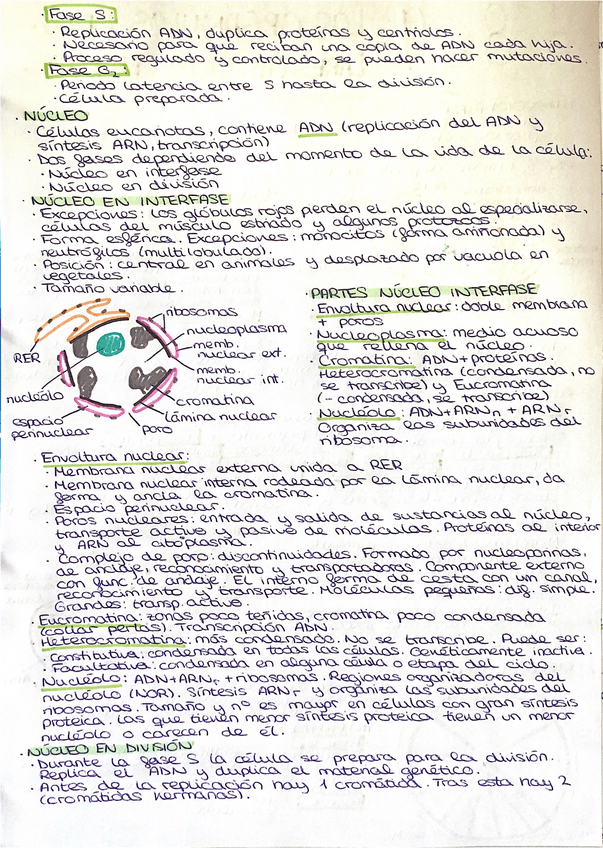 Fase S:
· Replicación ADN, duplica proteínas y centriolos.
· Necesario para que reciban una copia de ADN cada hija.
· Proceso regulado y controlado, se pueden hacer mutaciones.
· Fase G₂:
· Periodo latencia entre S hasta la división.
· Célula preparada.
· NÚCLEO
· Células eucariotas, contiene ADN (replicación del ADN y
síntesis ARN, transcripción)
· Dos fases dependiendo del momento de la vida de la célula:
· Núcleo en interfase
· Núcleo en división
· NÚCLEO EN INTERFASE
· Excepciones: los glóbulos rojos pierden el núcleo al especializarse,
células del músculo estriado y algunos protozoos.
· Forma esférica. Excepciones: monocitos (forma arriñonada) y
neutrófilos (multilobulado).
· Posición: central en animales y desplazado por vacuola en
vegetales.
· Tamaño variable.
ribosomas
nucleoplasma
memb.
nuclear ext.
memb.
nuclear int.
cromatina
lámina nuclear
poro
RER
nucléolo
espacio
perinuclear
· PARTES NÚCLEO INTERFASE
· Envoltura nuclear: doble membrana
+ poros
· Nucleoplasma: medio acuoso
que rellena el núcleo.
· Cromatina: ADN+proteínas.
Heterocromatina (condensada, no
se transcribe) y Eucromatina
(- condensada, se transcribe)
· Nucléolo: ADN+ARNn + ARNr
Organiza las subunidades del
ribosoma.
· Envoltura nuclear:
· Membrana nuclear externa unida a RER
· Membrana nuclear interna rodeada por la lámina nuclear, da
forma y ancla la cromatina.
· Espacio perinuclear.
· Poros nucleares: entrada y salida de sustancias al núcleo,
transporte activo y pasivo de moléculas. Proteínas al interior
y ARN al citoplasma.
· Complejo de poro: discontinuidades. Formado por nucleoporinas,
de anclaje, reconocimiento y transportadoras. Componente externo
con func. de anclaje. El interno forma de cesta con un canal,
reconocimiento y transporte. Moléculas pequeñas: dif. simple.
Grandes: transp. activo.
· Eucromatina: zonas poco teñidas, cromatina poco condensada
(collar perlas). Transcripción ADN.
· Heterocromatina: más condensado. No se transcribe. Puede ser:
· Constitutiva: condensada en todas las células. Genéticamente inactiva.
· Facultativa: condensada en alguna célula o etapa del ciclo.
· Nucléolo: ADN+ARNr + ribosomas. Regiones organizadoras del
nucléolo (NOR). Síntesis ARNr y organiza las subunidades del
ribosomas. Tamaño y nº es mayor en células con gran síntesis
proteica. Las que tienen menor síntesis proteica tienen un menor
nucléolo o carecen de él.
· NÚCLEO EN DIVISIÓN
· Durante la fase S la célula se prepara para la división.
Replica el ADN y duplica el material genético.
· Antes de la replicación hay 1 cromátida. Tras esta hay 2
(cromátidas hermanas).